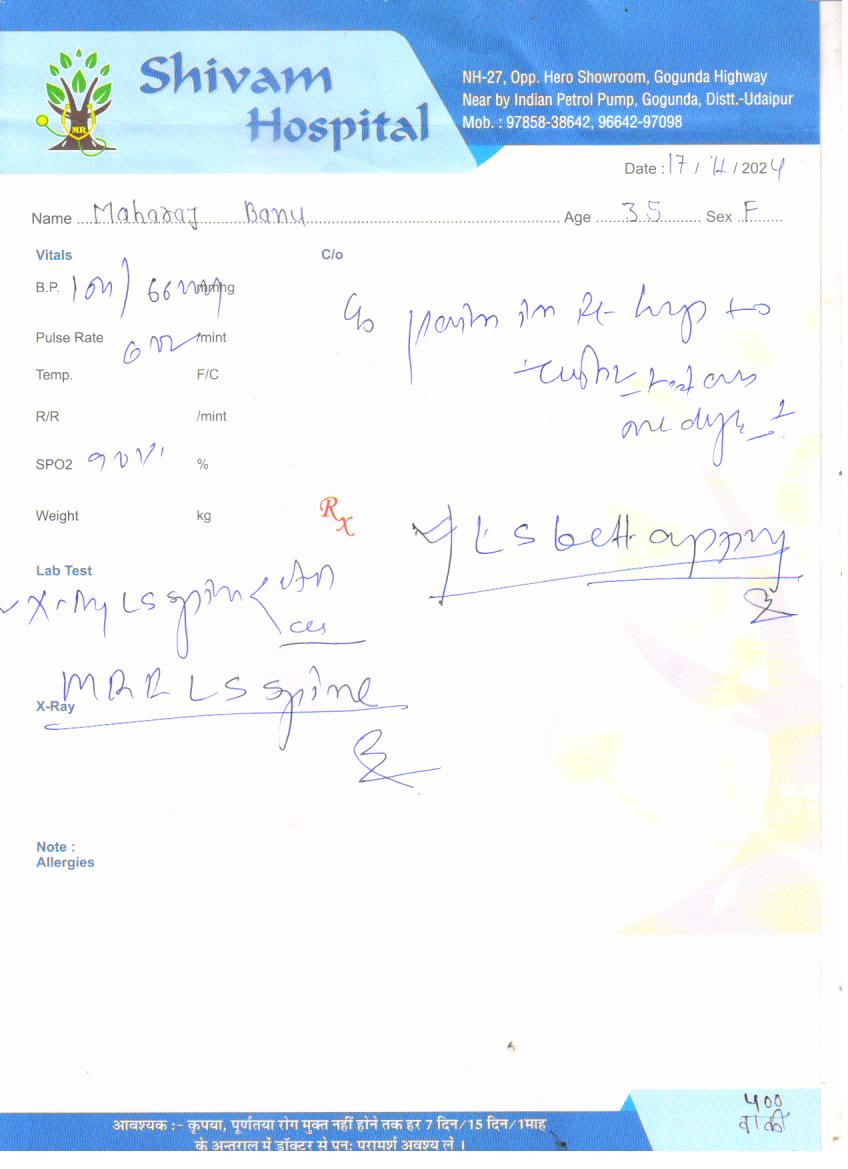 Shivam
Hospital
MR
NH-27, Opp. Hero Showroom, Gogunda Highway
Near by Indian Petrol Pump, Gogunda, Distt.-Udaipur
Mob. : 97858-38642, 96642-97098
Date : 17 / 11 / 2024
Name Maharaj Banu Age 35 Sex F
Vitals C/o
B.P. mmhg
Pulse Rate /mint
Temp. F/C
R/R /mint
SPO2 %
Weight kg
C/o pain in Rt hip to
Rx
LS belt apply
Lab Test
X-Ray LS spine AP
MRI LS spine
X-Ray
Note :
Allergies
400
बाकी
आवश्यक :- कृपया, पूर्णतया रोग मुक्त नहीं होने तक हर 7 दिन/15 दिन/1माह
के अन्तराल में डॉक्टर से पुनः परामर्श अवश्य लें ।